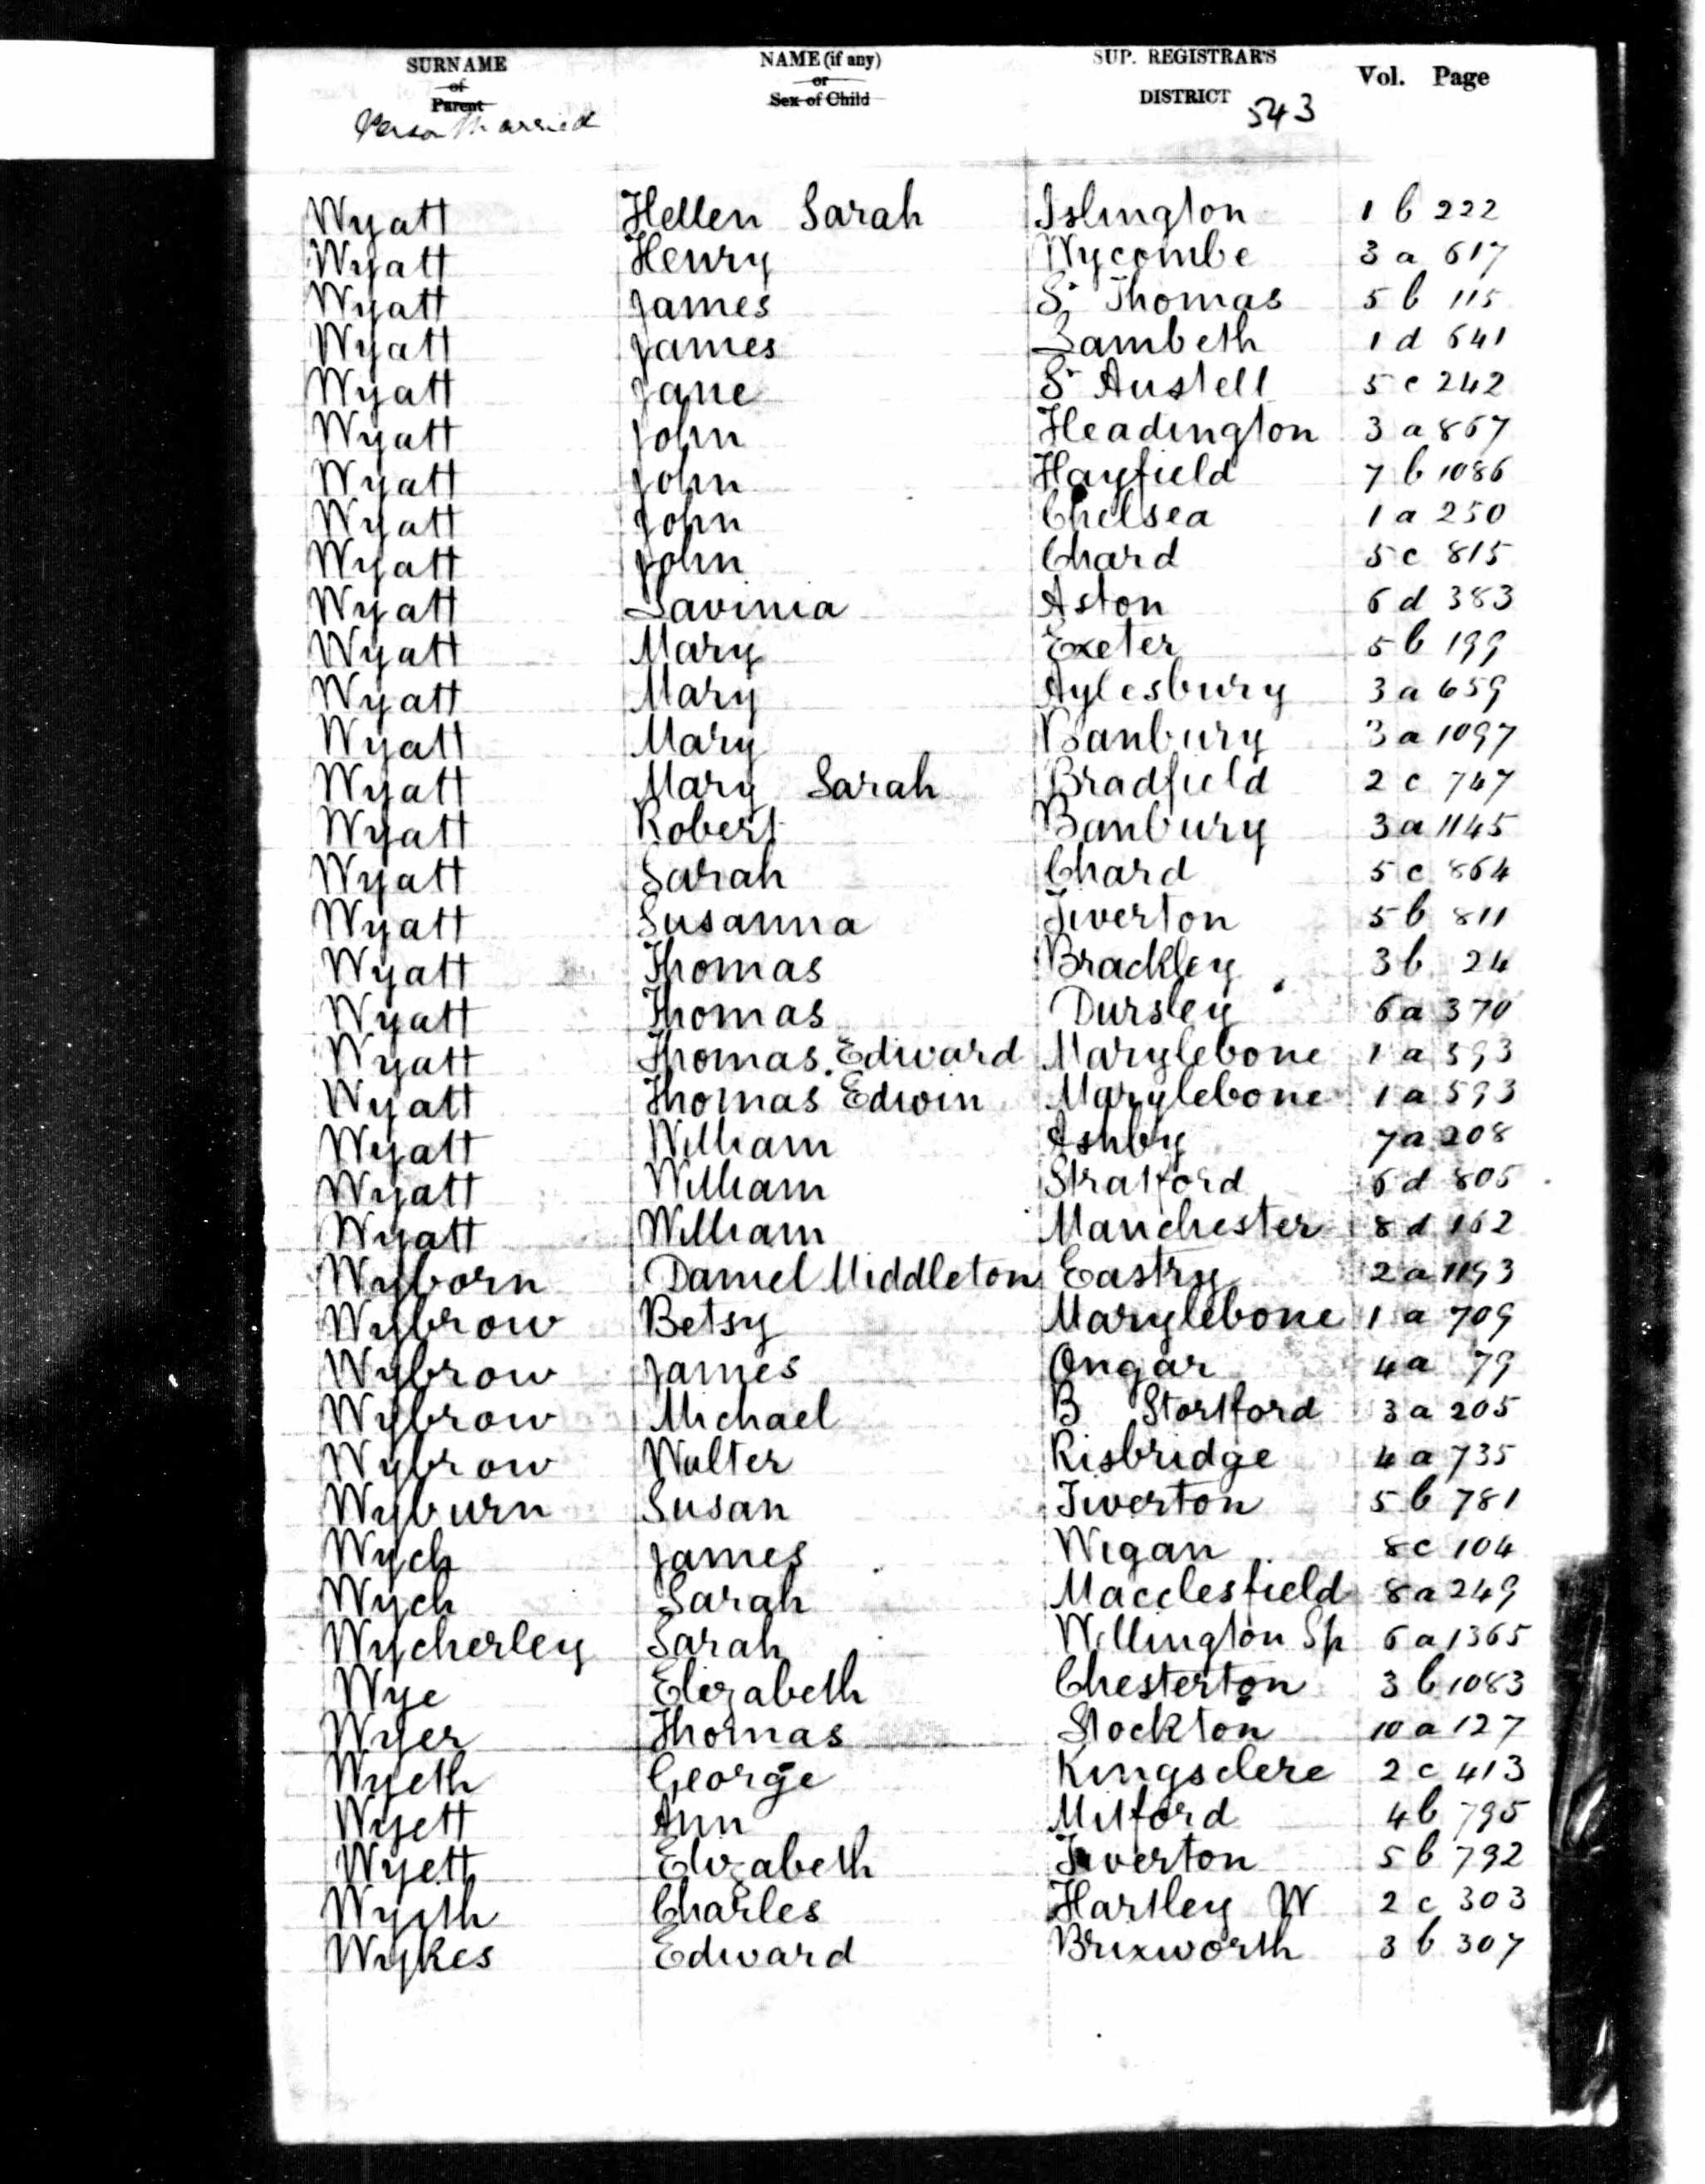 SURNAME NAME (if any) SUP. REGISTRAR'S Vol. Page
of or
Parent Sex of Child DISTRICT
Person Married 543
Wyatt Hellen Sarah Islington 1 b 222
Wyatt Henry Wycombe 3 a 617
Wyatt James St Thomas 5 b 115
Wyatt James Lambeth 1 d 641
Wyatt Jane St Austell 5 c 242
Wyatt John Headington 3 a 867
Wyatt John Hayfield 7 b 1086
Wyatt John Chelsea 1 a 250
Wyatt John Chard 5 c 815
Wyatt Lavinia Aston 6 d 383
Wyatt Mary Exeter 5 b 199
Wyatt Mary Aylesbury 3 a 659
Wyatt Mary Banbury 3 a 1097
Wyatt Mary Sarah Bradfield 2 c 747
Wyatt Robert Banbury 3 a 1145
Wyatt Sarah Chard 5 c 864
Wyatt Susanna Tiverton 5 b 811
Wyatt Thomas Brackley 3 b 24
Wyatt Thomas Dursley 6 a 370
Wyatt Thomas Edward Marylebone 1 a 593
Wyatt Thomas Edwin Marylebone 1 a 593
Wyatt William Ashby 7 a 208
Wyatt William Stratford 6 d 805
Wyatt William Manchester 8 d 162
Wyborn Daniel Middleton Eastry 2 a 1193
Wybrow Betsy Marylebone 1 a 709
Wybrow James Ongar 4 a 79
Wybrow Michael B Stortford 3 a 205
Wybrow Walter Risbridge 4 a 735
Wyburn Susan Tiverton 5 b 781
Wych James Wigan 8 c 104
Wych Sarah Macclesfield 8 a 249
Wycherley Sarah Wellington Sp 6 a 1365
Wye Elizabeth Chesterton 3 b 1083
Wyer Thomas Stockton 10 a 127
Wyeth George Kingsclere 2 c 413
Wyett Ann Mitford 4 b 795
Wyett Elizabeth Tiverton 5 b 792
Wyith Charles Hartley W 2 c 303
Wykes Edward Brixworth 3 b 307